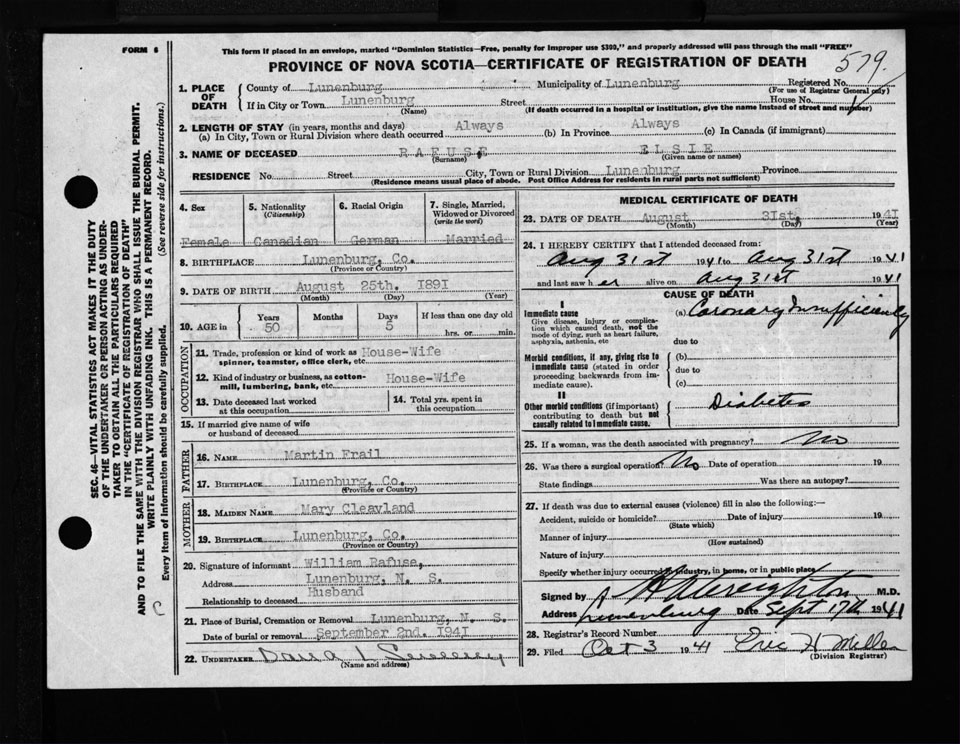 FORM 6
This form if placed in an envelope, marked "Dominion Statistics—Free, penalty for improper use $300," and properly addressed will pass through the mail "FREE"
PROVINCE OF NOVA SCOTIA—CERTIFICATE OF REGISTRATION OF DEATH
579
1. PLACE OF DEATH
County of Lunenburg Municipality of Lunenburg Registered No.
(For use of Registrar General only)
If in City or Town Lunenburg Street House No.
(Name) (If death occurred in a hospital or institution, give the name instead of street and number)
2. LENGTH OF STAY (in years, months and days)
(a) In City, Town or Rural Division where death occurred Always (b) In Province Always (c) In Canada (if immigrant)
3. NAME OF DECEASED RAFUSE, ELSIE
(Surname) (Given name or names)
RESIDENCE No. Street City, Town or Rural Division Lunenburg Province
(Residence means usual place of abode. Post Office Address for residents in rural parts not sufficient)
4. Sex 5. Nationality (Citizenship) 6. Racial Origin 7. Single, Married, Widowed or Divorced (write the word)
Female Canadian German Married
8. BIRTHPLACE Lunenburg, Co.
(Province or Country)
9. DATE OF BIRTH August 25th. 1891
(Month) (Day) (Year)
10. AGE in Years Months Days If less than one day old
50 5 hrs. or min.
OCCUPATION
11. Trade, profession or kind of work as House-Wife
spinner, teamster, office clerk, etc.
12. Kind of industry or business, as cotton- House-Wife
mill, lumbering, bank, etc.
13. Date deceased last worked at this occupation
14. Total yrs. spent in this occupation
15. If married give name of wife or husband of deceased
FATHER
16. NAME Martin Frail
17. BIRTHPLACE Lunenburg, Co.
(Province or Country)
MOTHER
18. MAIDEN NAME Mary Cleavland
19. BIRTHPLACE Lunenburg, Co.
(Province or Country)
20. Signature of informant William Rafuse,
Address Lunenburg, N. S.
Relationship to deceased Husband
21. Place of Burial, Cremation or Removal Lunenburg, N. S.
Date of burial or removal September 2nd. 1941
22. UNDERTAKER
(Name and address)
MEDICAL CERTIFICATE OF DEATH
23. DATE OF DEATH August 31st, 1941
(Month) (Day) (Year)
24. I HEREBY CERTIFY that I attended deceased from:
Aug 31st 1941 to Aug 31st 1941
and last saw her alive on Aug 31st 1941
CAUSE OF DEATH
I
Immediate cause (a) Coronary Insufficiency
Give disease, injury or complication which caused death, not the mode of dying, such as heart failure, asphyxia, asthenia, etc
due to
Morbid conditions, if any, giving rise to immediate cause (stated in order proceeding backwards from immediate cause).
(b)
due to
(c)
II
Other morbid conditions (if important) contributing to death but not causally related to immediate cause.
Diabetes
25. If a woman, was the death associated with pregnancy? No
26. Was there a surgical operation? No Date of operation 19
State findings Was there an autopsy?
27. If death was due to external causes (violence) fill in also the following:—
Accident, suicide or homicide? Date of injury 19
(State which)
Manner of injury
(How sustained)
Nature of injury
Specify whether injury occurred in industry, in home, or in public place
Signed by Creighton M.D.
Address Lunenburg Date Sept 17th 1941
28. Registrar's Record Number
29. Filed Oct 3 1941 Eric H Miller
(Division Registrar)
SEC. 46—VITAL STATISTICS ACT MAKES IT THE DUTY
OF THE UNDERTAKER OR PERSON ACTING AS UNDER-
TAKER TO OBTAIN ALL THE PARTICULARS REQUIRED
IN THE "CERTIFICATE OF REGISTRATION OF DEATH"
AND TO FILE THE SAME WITH THE DIVISION REGISTRAR WHO SHALL ISSUE THE BURIAL PERMIT.
WRITE PLAINLY WITH UNFADING INK. THIS IS A PERMANENT RECORD.
Every item of information should be carefully supplied. (See reverse side for instructions.)
C